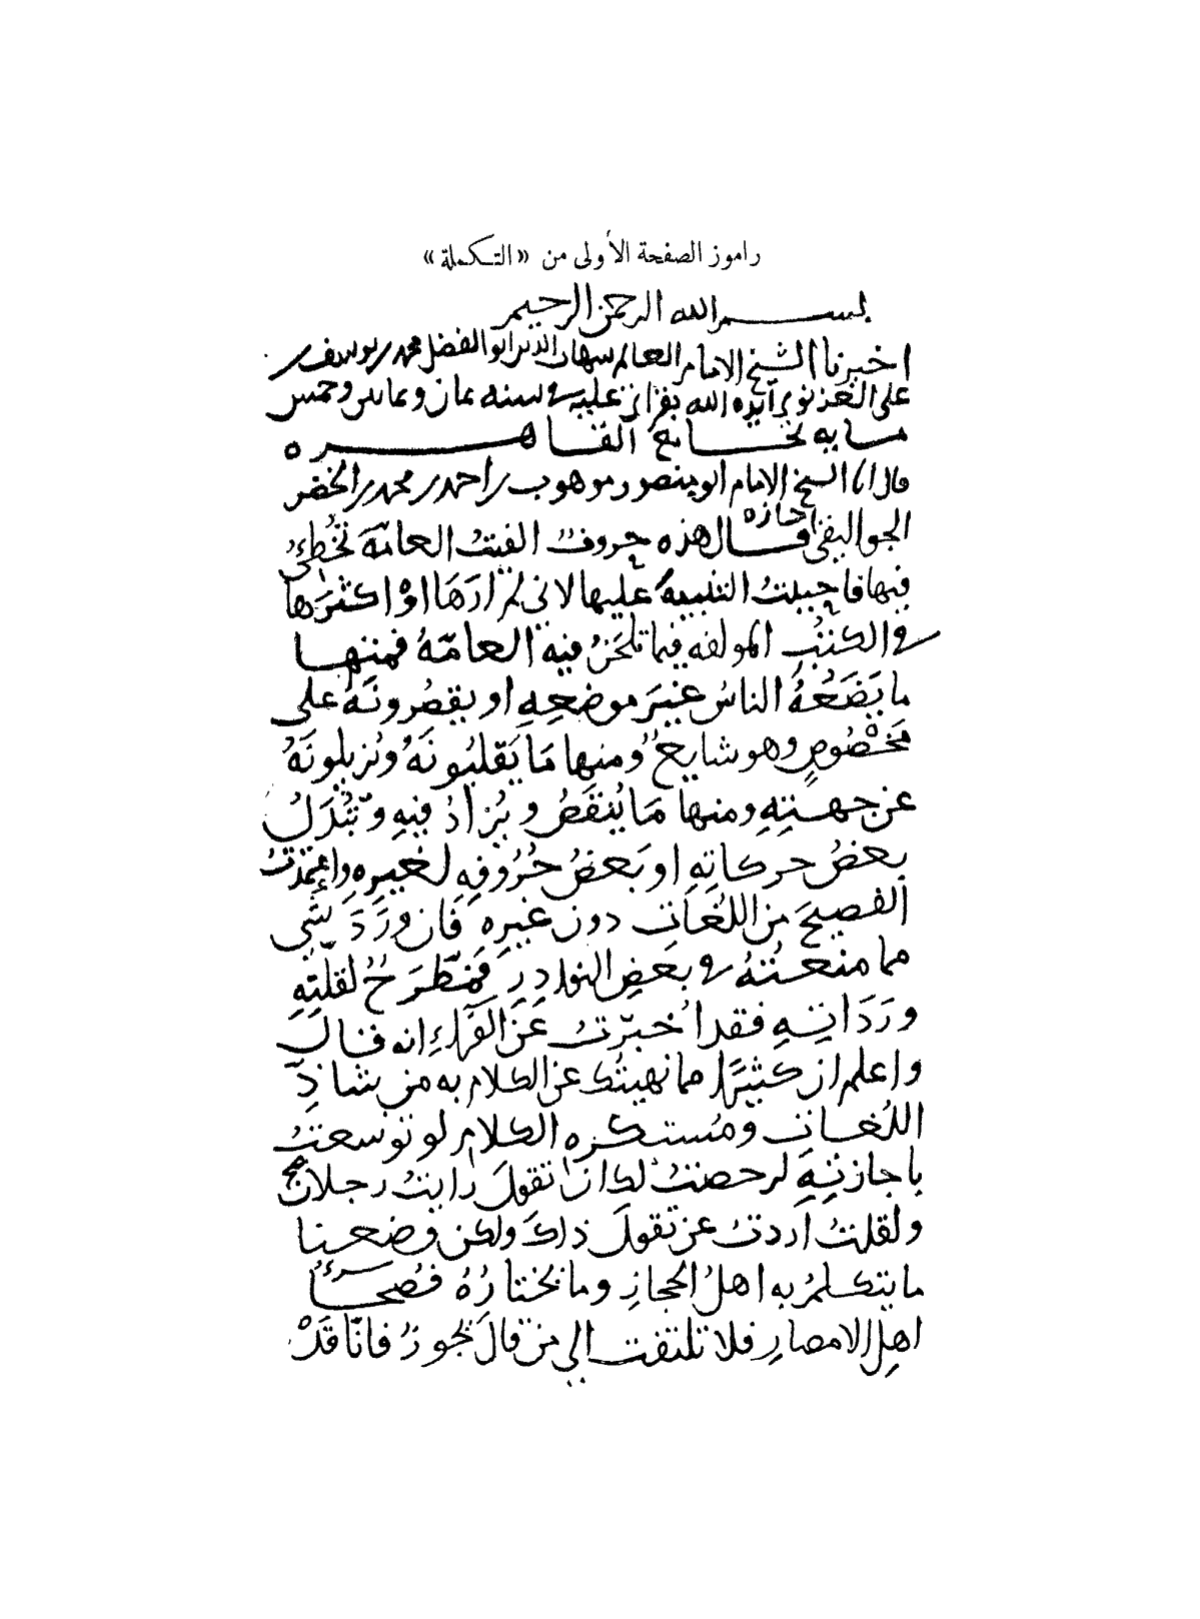 راموز الصفحة الأولى من «التكملة»
بسم الله الرحمن الرحيم
اخبرنا الشيخ الامام العالم شهاب الدين ابو الفضل محمد بن يوسف بن
على الغزنوي أيده الله بقراتى عليه فى سنه ثمان وثمانين وخمس
مايه بجامع القاهره
قال انا الشيخ الامام ابو منصور موهوب بن احمد بن محمد بن الخضر
الجواليقى اجازه قال هذه حروفٌ الفيتُ العامّة تُخطِئُ
فيها فاحببتُ التنبيهَ عليها لانى لم ارَهَا اوْ اكثرَها
فى الكتبِ المولفه فيما تلحَنُ فيه العامّهُ فمنها
ما يَضَعُهُ الناسُ غيرَ موضعِهِ او يقصُرونَهُ على
مَخْصُوصٍ وهو شايعٌ ومنها مَا يَقلبُونَهُ ويُزيلونَهُ
عن جهتِهِ ومنها مَا يُنقَصُ ويُزادُ فيهِ وتُبْدَلُ
بعضُ حركاتِهِ او بَعضُ حُرُوفِهِ لغيرِهِ واعتمدتُ
الفصيحَ من اللُغاتِ دون غيرِهِ فَان وَرَدَ شَى
مما منعتُهُ فى بعَضِ النوادِرِ فمُطّرَحٌ لقلّتِهِ
ورَدَاتِهِ فقد اُخبِرْتُ عَنِ الفَرّاءِ انه قال
واعلم ان كثيرًا مما نهيتُكَ عن الكلام به من شاذِّ
اللُغاتِ ومُستكرهِ الكلام لو توسعتُ
باجازتِهِ لرخصتُ لك ان تقولَ رايتُ رجلان
ولقلتُ اردتُ عن تقولَ ذاكَ ولكن وضعنا
ما يتكلمُ به اهلُ الحجازِ وما يختارُهُ فُصحاءُ
اهلِ الامصارِ فلا تلتفت الى من قالَ يجوزُ فانّا قَدْ